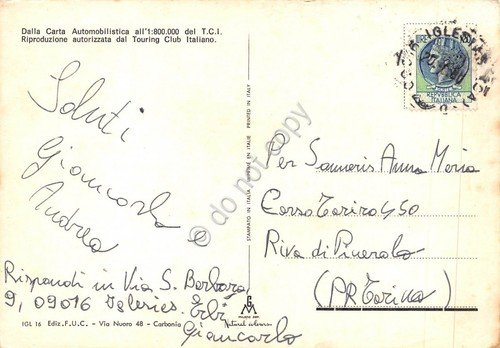 Dalla Carta Automobilistica all'1:800.000 del T.C.I.
Riproduzione autorizzata dal Touring Club Italiano.
Saluti
Giancarlo e
Andrea
Rispondi in Via S. Barbara,
9, 09016 Iglesies
Giancarlo
IGL 16 Ediz. F.U.C. - Via Nuoro 48 - Carbonia
STAMPATO IN ITALIA IMPRIMÉ EN ITALIE PRINTED IN ITALY
IGLESIAS
REPVBBLICA
ITALIANA
Per Sanneris Anna Maria
Corso Torino 450
Riva di Pinerolo
(PR Torino)
do not copy